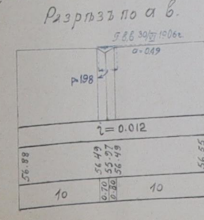 Разрѣзъ по а в.
Г.В.В. 30/VII 1906 г.
а=0.19
р=198
i = 0.012
56.88
56.49
55.97
56.49
56.55
10
0.70
0.80
10